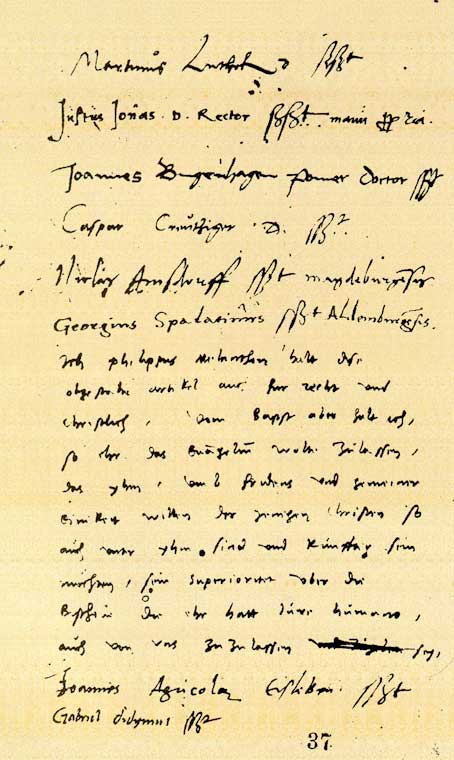 Martinus Luther D sßt
Justus Jonas . D . Rector sßsßt. manu ppria.
Joannes Bugenhagen Pomer Doctor sßt
Caspar Creutziger D. sßt
Niclas Amsdorff sßt magdeburgensis
Georgius Spalatinus sßt Aldemburgensis.
Ich philippus Melanthon halt diese
obgestelte artikel auch fur recht und
christlich, vom Bapst aber halt ich,
so ehr das Evangelium wolte zulassen,
das yhm, umb fridens und gemeiner
Einikeit willen der jenigen Christen so
auch unter yhm sind und kunfftig sein
mochten, sein superioritet uber die
Bischove die ehr hatt Jure humano,
auch von uns zuzulassen sey,
Joannes Agricola Eisleben sßt
Gabriel didymus sßt
37.